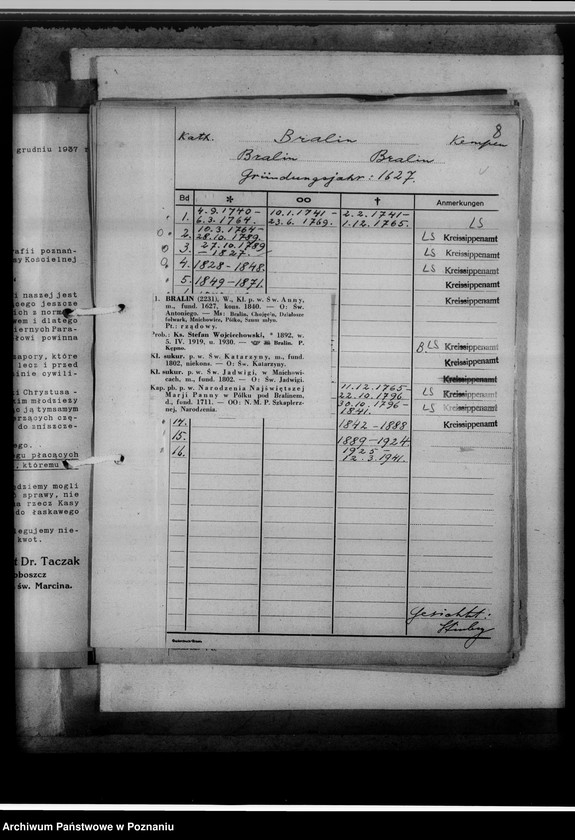 8
Kath. Bralin Kempen
Bralin Bralin
Gründungsjahr: 1627.
Bd * oo † Anmerkungen
1. 4.9.1740- 10.1.1741- 2.2.1741- LS
6.3.1764. 23.6.1769. 1.12.1765.
2. 10.3.1764- LS Kreissippenamt
28.10.1789.
3. 27.10.1789 LS Kreissippenamt
-1827.
4. 1828-1848. LS Kreissippenamt
5. 1849-1871. Kreissippenamt
Kreissippenamt
1. BRALIN (2231), W., Kl. p. w. Św. Anny,
m., fund. 1627, kons. 1840. — O: Św.
Antoniego. — Ms: Bralin, Chojęcin, Działosze
folwark, Mnichowice, Pólko, Szum młyn.
Pt.: rządowy.
Prob.: Ks. Stefan Wojciechowski, * 1892. w.
5. IV. 1919, n. 1930. — Bralin. P.
Kępno.
B. LS Kreissippenamt
Kl. sukur. p. w. Św. Katarzyny, m., fund.
1802, niekons. — O: Św. Katarzyny.
Kreissippenamt
Kl. sukur. p. w. Św. Jadwigi, w Mnichowi-
cach, m., fund. 1802. — O: Św. Jadwigi.
Kreissippenamt
Kap. pb. p. w. Narodzenia Najświętszej
Marji Panny w Pólku pod Bralinem,
d., fund. 1711. — OO: N. M. P. Szkaplerz-
nej, Narodzenia.
11.12.1765- LS Kreissippenamt
22.10.1796
30.10.1796- LS Kreissippenamt
1841.
14. 1842-1888 Kreissippenamt
15. 1889-1924
16. 1925-
12.3.1941.
Gesichtet:
grudniu 1937 r
rafii poznań-
Kościelnej
i naszej jest
cego jeszcze
ich z norma
wem i dlatego
iernych Para-
łowi powinna
zapory, które
lecz i przed
inie cywili-
i Chrystusa -
im młodzieży
ąc ją tymsamym
erzących czę-
do zniszcze-
ego.
gu płacących
, któremu
ędziemy mogli
sprawy, nie
na rzecz Kasy
do łaskawego
legujemy nie-
kwot.
Dr. Taczak
oboszcz
św. Marcina.
Archiwum Państwowe w Poznaniu